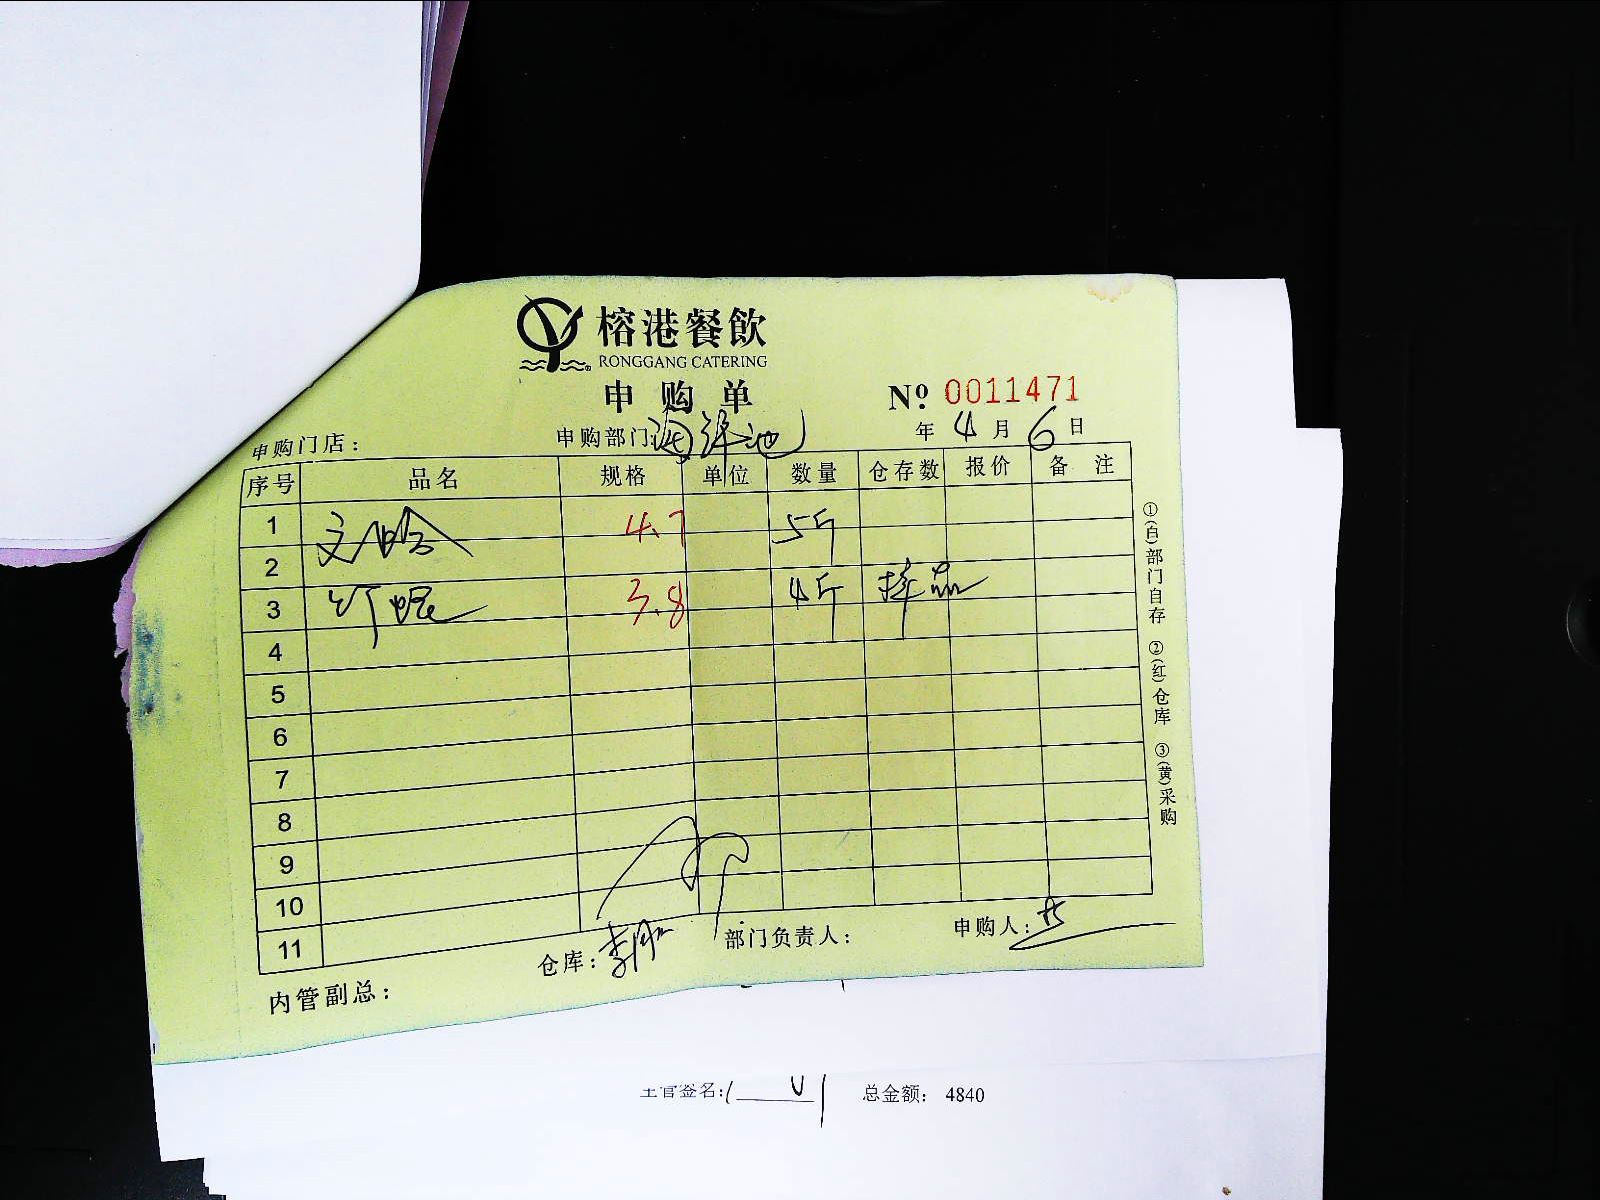 榕港餐飲
RONGGANG CATERING
申购单
№ 0011471
申购门店： 申购部门：海鲜池 年 4 月 6 日
序号 品名 规格 单位 数量 仓存数 报价 备 注
1 文蛤 4.7 5斤
2
3 竹蛏 3.8 4斤 样品
4
5
6
7
8
9
10
11
仓库： 部门负责人： 申购人：
内管副总：
①(白)部门自存 ②(红)仓库 ③(黄)采购
主管签名: 总金额： 4840